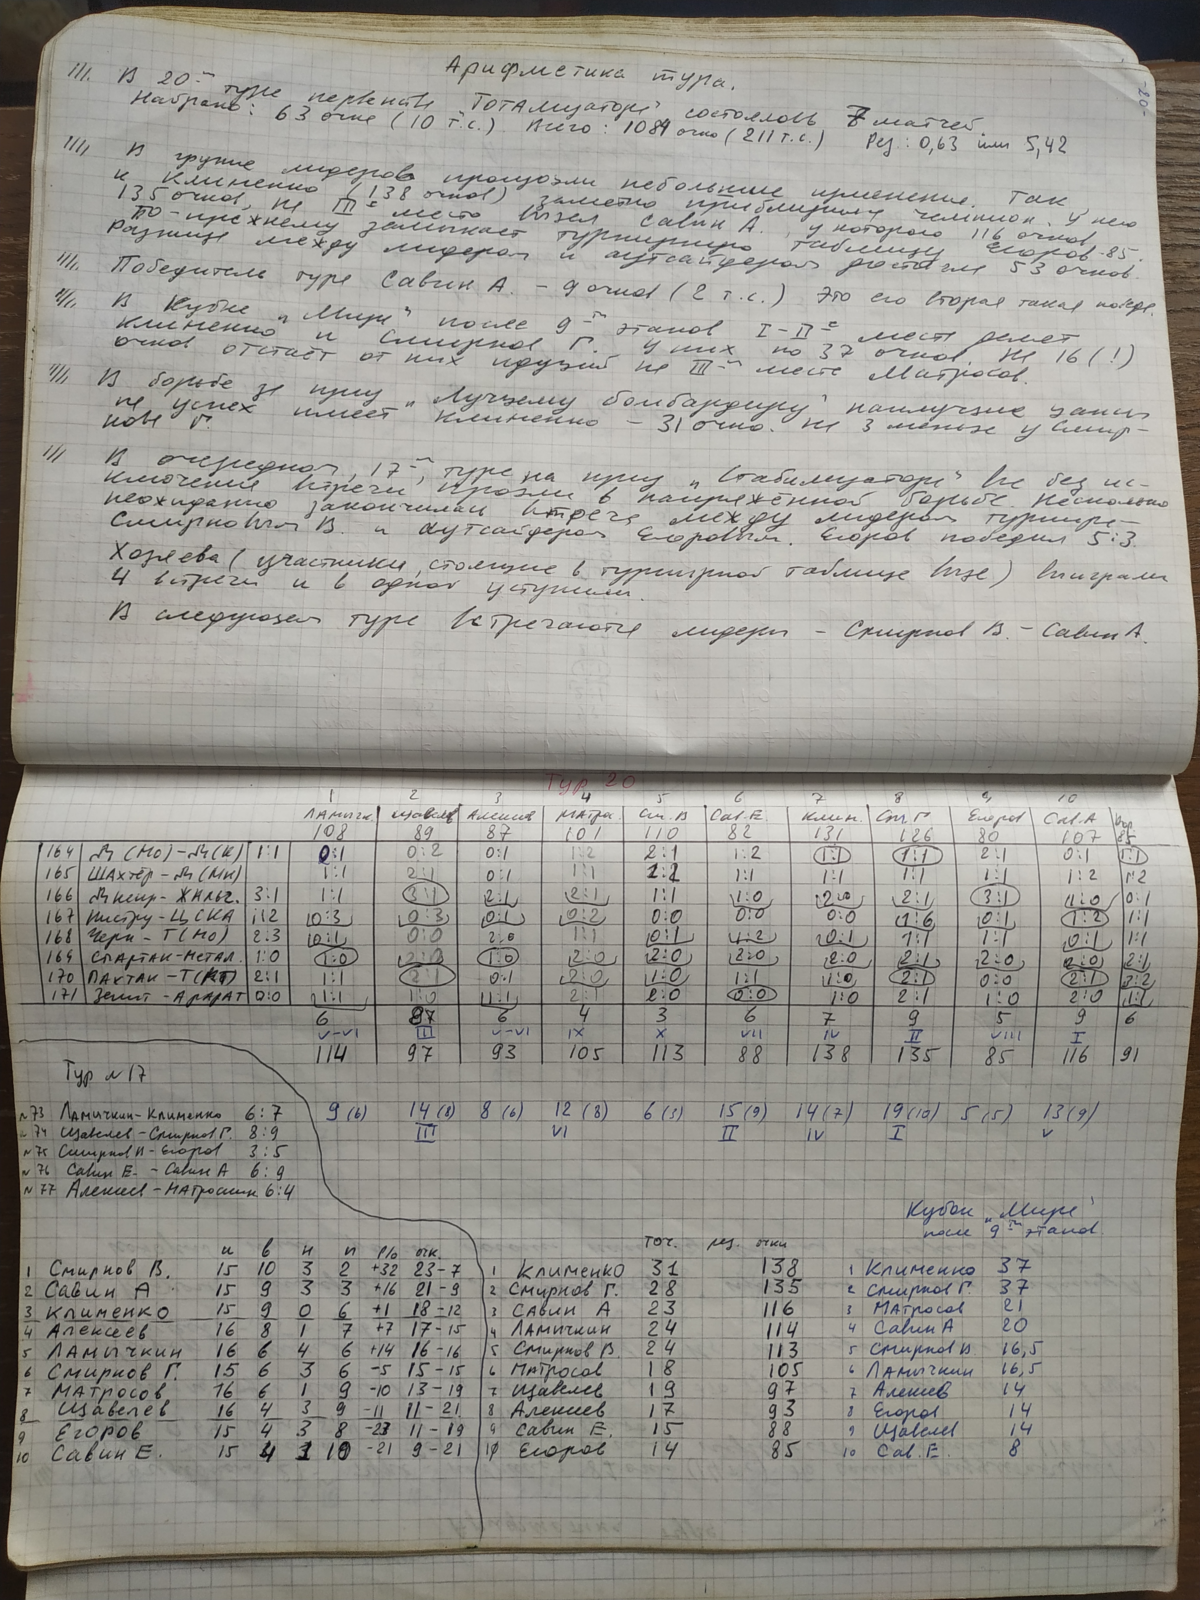 Арифметика тура.
В 20-м туре первенства "Тотализатора" состоялось 7 матчей.
Набрано: 63 очка (10 т.с.) Всего: 1084 очко (211 т.с.) Рез.: 0,63 или 5,42
В группе лидеров произошли небольшие изменения. Так
к Клименко (138 очков) заметно приблизился чемпион. У него
135 очков, на III-е место вышел Савин А., у которого 116 очков.
По-прежнему замыкает турнирную таблицу Егоров - 85.
Разница между лидером и аутсайдером достигла 53 очков.
Победитель тура Савин А. - 9 очков (2 т.с.) Это его вторая такая победа.
В Кубке "Мира" после 9-ти этапов I-II-е места делят
Клименко и Смирнов Г. У них по 37 очков. На 16 (!)
очков отстаёт от них идущий на III-м месте Матросов.
В борьбе за приз "Лучшему бомбардиру" наилучшие шансы
на успех имеет Клименко - 31 очко. На 3 меньше у Смир-
нова Г.
В очередном, 17-м туре на приз "Стабилизатора" все без ис-
ключения встречи прошли в напряжённой борьбе. Несколько
неожиданно закончилась встреча между лидером турнира -
Смирновым В. и аутсайдером Егоровым. Егоров победил 5:3.
Хозяева (участники, стоящие в турнирной таблице выше) выиграли
4 встречи и в одной уступили.
В следующем туре встречаются лидеры - Смирнов В. - Савин А.
Тур 20
1 2 3 4 5 6 7 8 9 10
Ламычк. Щавелев Алексеев Матро. См. В Сав. Е. Клим. См. Г. Егоров Сав. А
108 89 87 101 110 82 131 126 80 107 85
164 Д (Мо) - Д (К) 1:1 0:1 0:2 0:1 1:2 2:1 1:2 1:1 1:1 2:1 0:1 1:1
165 Шахтёр - Д (Мн) 1:1 2:1 0:1 1:1 1:2 1:1 1:1 1:1 1:1 1:2 1:2
166 Днепр - Жальг. 3:1 1:1 3:1 2:1 2:1 1:1 1:0 2:0 2:1 3:1 1:0 0:1
167 Нистру - ЦСКА 1:2 0:3 0:3 0:1 0:2 0:0 0:0 0:0 1:6 0:1 1:2 1:1
168 Черн - Т (Мо) 2:3 0:1 0:0 2:0 1:1 0:1 1:2 0:1 1:1 1:1 0:1 1:1
169 Спартак - Метал. 1:0 1:0 2:0 1:0 2:0 2:0 2:0 2:0 2:1 2:0 2:0 2:1
170 Пахтак - Т 2:1 1:1 2:1 0:1 2:0 1:0 1:1 1:0 2:1 0:0 2:1
171 Зенит - Арарат 0:0 1:1 1:0 1:1 2:1 2:0 0:0 1:0 2:1 1:0 2:0 1:1
6 8 6 4 3 6 7 9 5 9 6
V-VI III V-VI IX X VII IV II VIII I
114 97 93 105 113 88 138 135 85 116 91
Тур №17
№73 Ламычкин - Клименко 6:7 9 (6) 14 (8) 8 (6) 12 (8) 6 (3) 15 (9) 14 (7) 19 (10) 5 (5) 13 (9)
№74 Щавелев - Смирнов Г. 8:9 III VI II IV I V
№75 Смирнов В - Егоров 3:5
№76 Савин Е. - Савин А 6:9
№77 Алексеев - Матросов 6:4
Кубок "Мира"
после 9-ти этапов
и в н п р/о очк. точ. рез. очки
1 Смирнов В. 15 10 3 2 +32 23-7 1 Клименко 31 138 1 Клименко 37
2 Савин А 15 9 3 3 +16 21-9 2 Смирнов Г. 28 135 2 Смирнов Г. 37
3 Клименко 15 9 0 6 +1 18-12 3 Савин А 23 116 3 Матросов 21
4 Алексеев 16 8 1 7 +7 17-15 4 Ламычкин 24 114 4 Савин А 20
5 Ламычкин 16 6 4 6 +14 16-16 5 Смирнов В. 24 113 5 Смирнов В 16,5
6 Смирнов Г. 15 6 3 6 -5 15-15 6 Матросов 18 105 6 Ламычкин 16,5
7 Матросов 16 6 1 9 -10 13-19 7 Щавелев 19 97 7 Алексеев 14
8 Щавелев 16 4 3 9 -11 11-21 8 Алексеев 17 93 8 Егоров 14
9 Егоров 15 4 3 8 -23 11-19 9 Савин Е. 15 88 9 Щавелев 14
10 Савин Е. 15 4 1 10 -21 9-21 10 Егоров 14 85 10 Сав. Е. 8